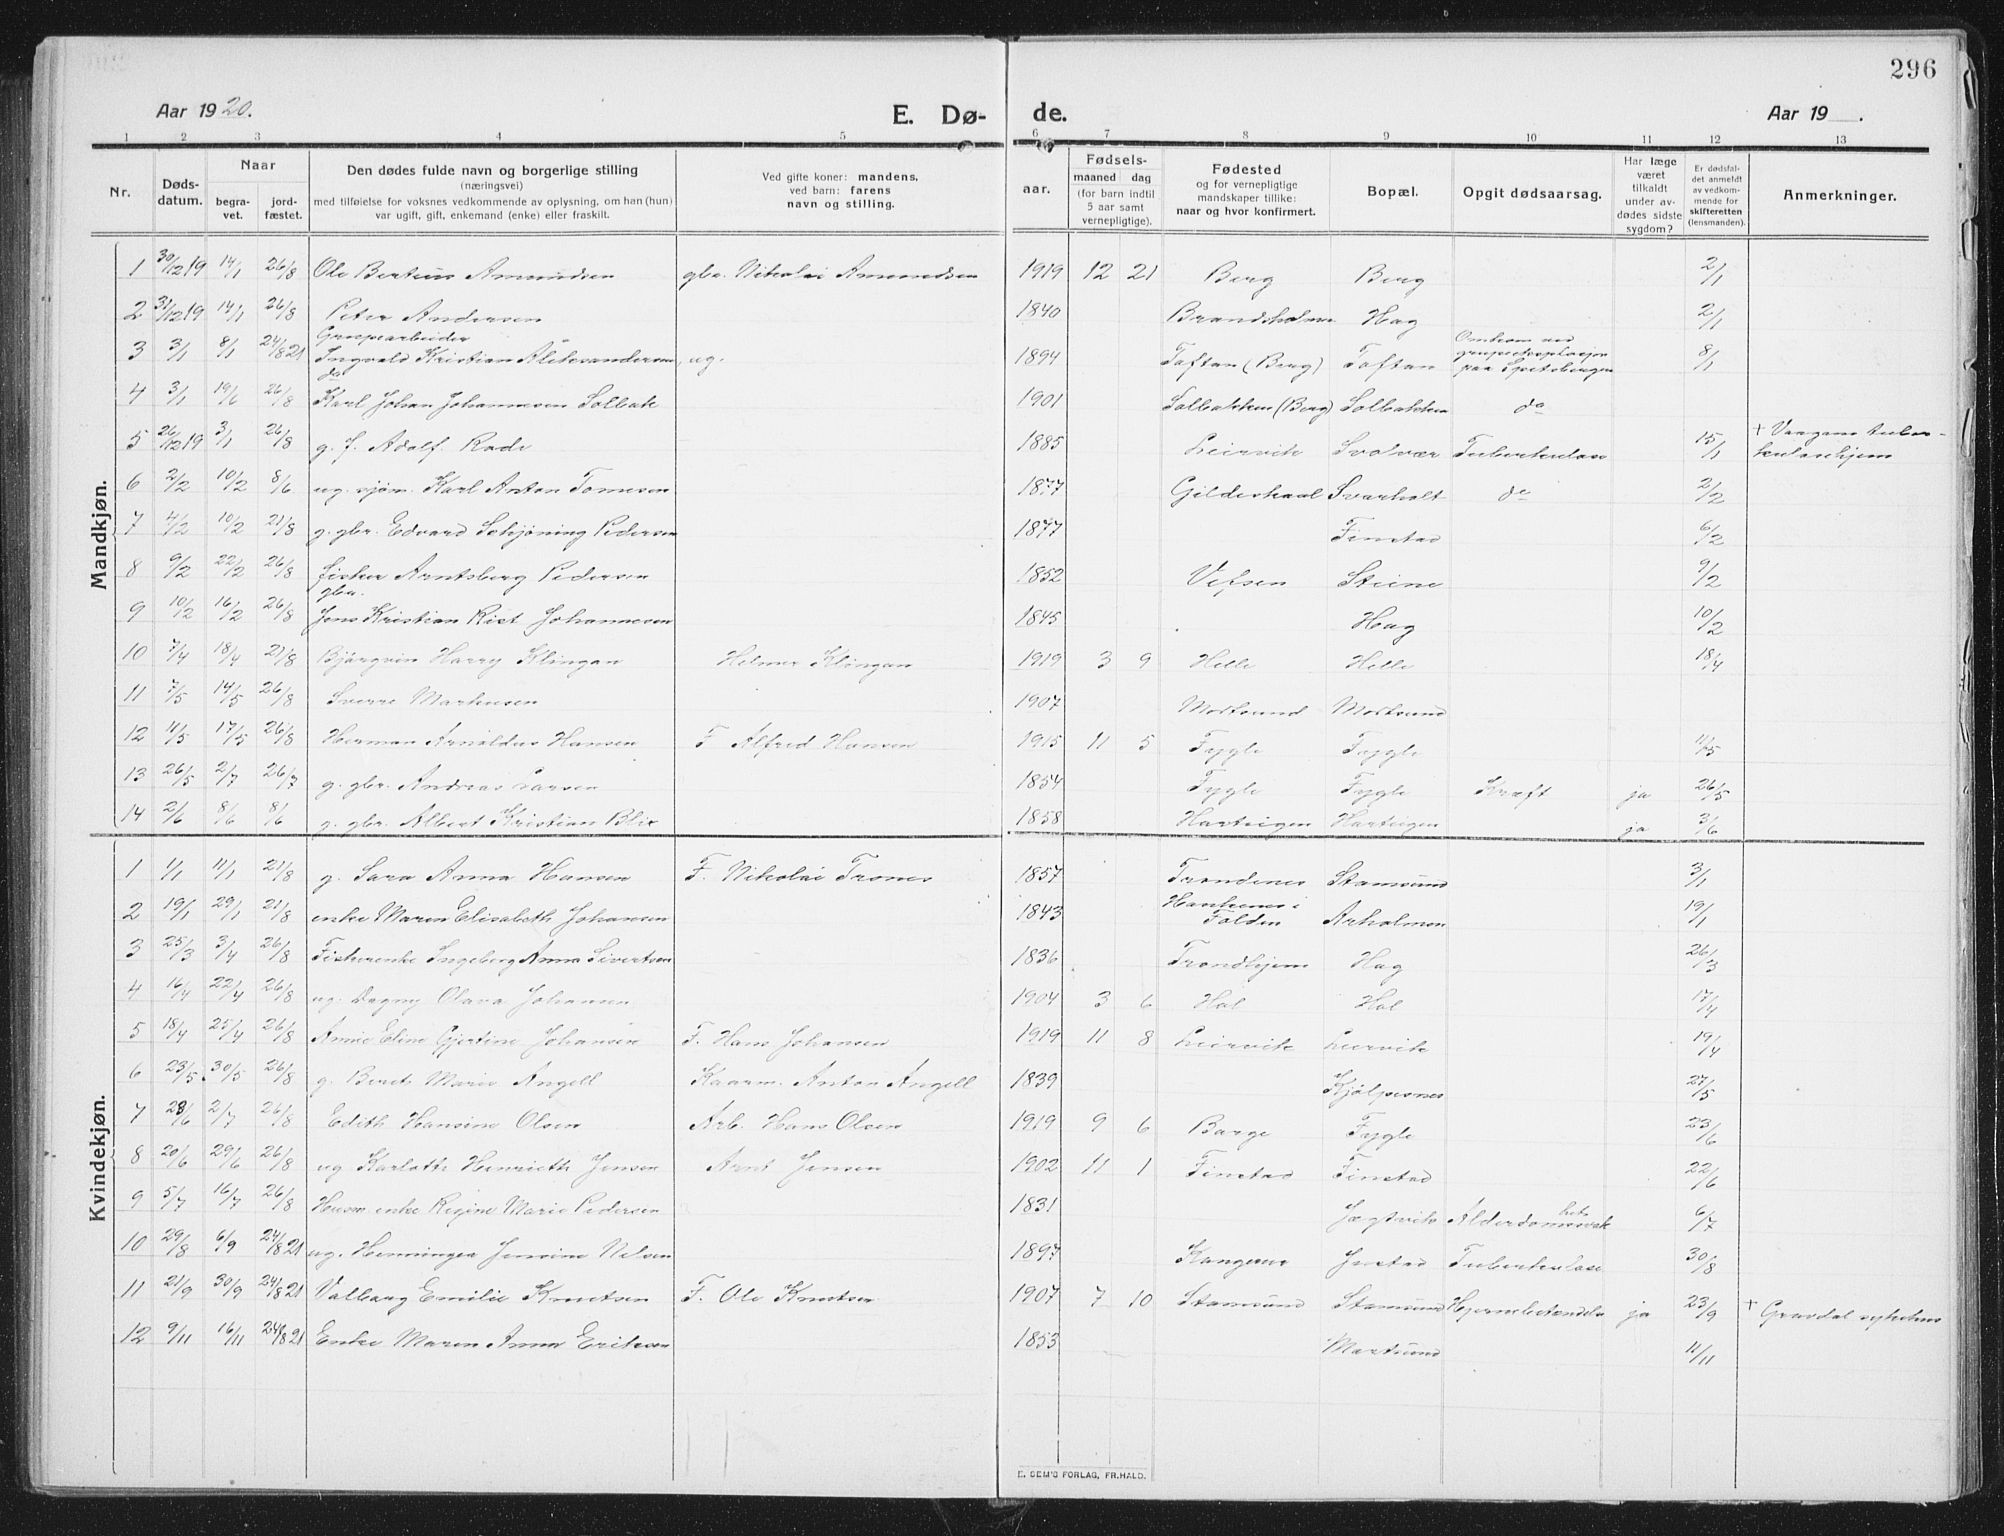 296
Aar 1920. E. Dø- de. Aar 19 .
1 2 3 4 5 6 7 8 9 10 11 12 13
Nr.
Døds-
datum.
Naar
begra-
vet.
jord-
fæstet.
Den dødes fulde navn og borgerlige stilling
(næringsvei)
med tilføielse for voksnes vedkommende av oplysning, om han (hun)
var ugift, gift, enkemand (enke) eller fraskilt.
Ved gifte koner: mandens,
ved barn: farens
navn og stilling.
aar.
Fødsels-
maaned dag
(for barn indtil
5 aar samt
vernepligtige).
Fødested
og for vernepligtige
mandskaper tillike:
naar og hvor konfirmert.
Bopæl.
Opgit dødsaarsag.
Har læge
været
tilkaldt
under av-
dødes sidste
sygdom?
Er dødsfal-
det anmeldt
av vedkom-
mende for
skifteretten
(lensmanden).
Anmerkninger.
Mandkjøn.
1 30/12 19 14/1 26/8 Ole Bertius Amundsen gbr. Nikolai Amundsen 1919 12 21 Berg Berg 2/1
2 31/12 19 14/1 26/8 Peter Andersen 1840 Brandsholmen Hag 2/1
Grubearbeider
3 3/1 8/1 24/8 21 Ingvald Kristian Aleksandersen, ug. 1894 Toftan (Berg) Toftan Omkom ved
paa Spetsbergen 8/1
do
4 3/1 19/6 26/8 Karl Johan Johannesen Solbak 1901 Solbakken (Berg) Solbakken do
5 26/12 19 3/1 26/8 g. f. Adolf Rode 1885 Leirvik Svolvær Tuberkulose 15/1 + Vaagans tuber-
kulosehjem
6 2/2 10/2 8/6 ug. sjøm. Karl Anton Tomesen 1877 Gildeskaal Svarholt do 2/2
7 4/2 10/2 21/8 g. gbr. Edvard Schjøning Pedersen 1877 Finstad 6/2
8 9/2 22/2 26/8 fisker Arntsberg Pedersen 1852 Vefsen Steine 9/2
gbr.
9 10/2 16/2 26/8 Jens Kristian Rist Johannesen 1845 Hag 10/2
10 7/4 18/4 21/8 Bjørgvin Harry Klingan Helmer Klingan 1919 3 9 Helle Helle 18/4
11 7/5 14/5 26/8 Sverre Markusen 1907 Mortsund Mortsund
12 11/5 17/5 26/8 Herman Arnoldus Hansen F Alfred Hansen 1915 11 5 Fygle Fygle 11/5
13 26/5 2/7 26/7 g. gbr. Andreas Larsen 1854 Fygle Fygle Kræft ja 26/5
14 2/6 8/6 8/6 g. gbr. Albert Kristian Blix 1858 Hartvigen Hartvigen ja 3/6
Kvindekjøn.
1 1/1 11/1 21/8 g. Sara Anna Hansen F. Nikolai Trones 1857 Trondenes Stamsund 3/1
2 19/1 29/1 21/8 enke Maren Elisabeth Johansen 1843 i
Folden Arholmen 19/1
3 25/3 3/4 26/8 Fiskerenke Ingeberg Anna Sivertsen 1836 Trondhjem Hag 26/3
4 16/4 22/4 26/8 ug. Dagny Olava Johansen 1904 3 6 Hol Hol 17/4
5 18/4 25/4 26/8 Annie Eline Gjertine Johansen F. Hans Johansen 1919 11 8 Leirvik Leirvik 19/4
6 23/5 30/5 26/8 g. Beret Marie Angell Kaarm. Anton Angell 1839 Kjølpesnes 27/5
7 23/6 2/7 26/8 Edith Hansine Olsen Arb. Hans Olsen 1919 9 6 Borge Fygle 23/6
8 20/6 29/6 26/8 ug Karloth Henrieth Jensen Arnt Jensen 1902 11 1 Finstad Finstad 22/6
9 5/7 16/7 26/8 Husm. enke Regine Marie Pedersen 1831 Jægtvik Alderdomssvakhet 6/7
10 29/8 6/9 24/8 21 ug. Henningea Jensine Nilsen 1897 Jnstad Tuberkulose 30/8
11 21/9 30/9 24/8 21 Valborg Emilie Knutsen F. Ole Knutsen 1907 7 10 Stamsund Stamsund Hjernebetændelse ja 23/9 + Gravdal sykehus
12 9/11 16/11 24/8 21 Enke Maren Anna Eriksen 1853 Mortsund 11/11
E. SEM'S FORLAG, FR.HALD.